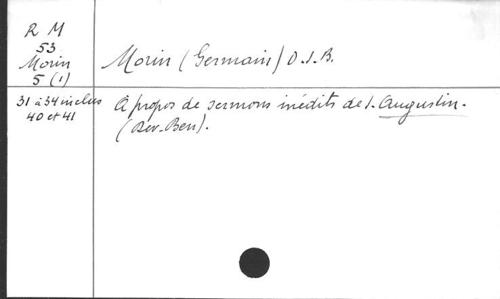 R M
53
Morin
5 (1)
Morin (Germain) O.S.B.
31 à 34 inclus
40 et 41
A propos de sermons inédits de S. Augustin.
(Rev. Ben).